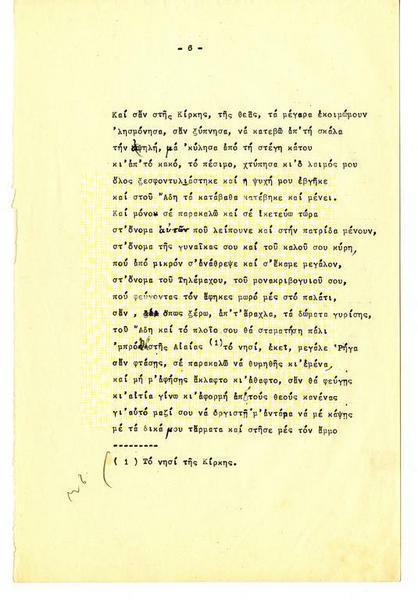 - 6 -
Καί σάν στῆς Κίρκης, τῆς θεᾶς, τά μέγαρα ἐκοιμώμουν
'λησμόνησα, σάν ξύπνησα, νά κατεβῶ ἀπ'τή σκάλα
τήν ψηλή, μά 'κύλησα ἀπό τή στέγη κάτου
κι'ἀπ'τό κακό, τό πέσιμο, χτύπησα κι'ὁ λαιμός μου
ὅλος ξεσφοντυλιάστηκε καί ἡ ψυχή μου ἐβγῆκε
καί στοῦ Ἅδη τά κατάβαθα κατέβηκε καί μένει.
Καί μόνον σέ παρακαλῶ καί σέ ἱκετεύω τώρα
στ'ὄνομα αὐτῶν πού λείπουνε καί στήν πατρίδα μένουν,
στ'ὄνομα τῆς γυναίκας σου καί τοῦ καλοῦ σου κύρη,
πού ἀπό μικρόν σ'ἀνάθρεψε καί σ'ἔκαμε μεγάλον,
στ'ὄνομα τοῦ Τηλέμαχου, τοῦ μονακριβογυιοῦ σου,
πού φεύγοντας τόν ἄφηκες μωρό μές στό παλάτι,
σάν , ὅπως ξέρω, ἀπ'τ'ἄραχλα, τά δώματα γυρίσης,
τοῦ Ἅδη καί τό πλοῖο σου θά σταματήση πάλι
'μπρός στῆς Αἰαίας (1) τό νησί, ἐκεῖ, μεγάλε Ρήγα
σάν φτάσης, σέ παρακαλῶ νά θυμηθῆς κι'ἐμένα,
καί μή μ'ἀφήσης ἄκλαφτο κι'ἄθαφτο, σάν θά φεύγης
κι'αἰτία γίνω κι'ἀφορμή ἀπ'τούς θεούς κανένας
γι'αὐτό μαζί σου νά ὀργιστῆ μ'ἀντάμα νά μέ κάψης
μέ τά δικά μου τἄρματα καί στῆσε μές τόν ἄμμο
---------
( 1 ) Τό νησί τῆς Κίρκης.